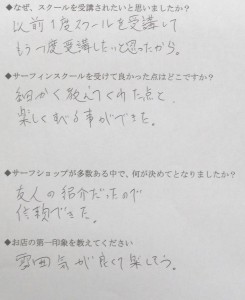 ◆なぜ、スクールを受講されたいと思いましたか？
以前1度スクールを受講して
もう一度受講したいと思ったから。
◆サーフィンスクールを受けて良かった点はどこですか？
細かく教えてくれた点と、
楽しく学べる事ができた。
◆サーフショップが多数ある中で、何が決めてとなりましたか？
友人の紹介だったので
信頼できた。
◆お店の第一印象を教えてください
雰囲気が良くて楽しそう。